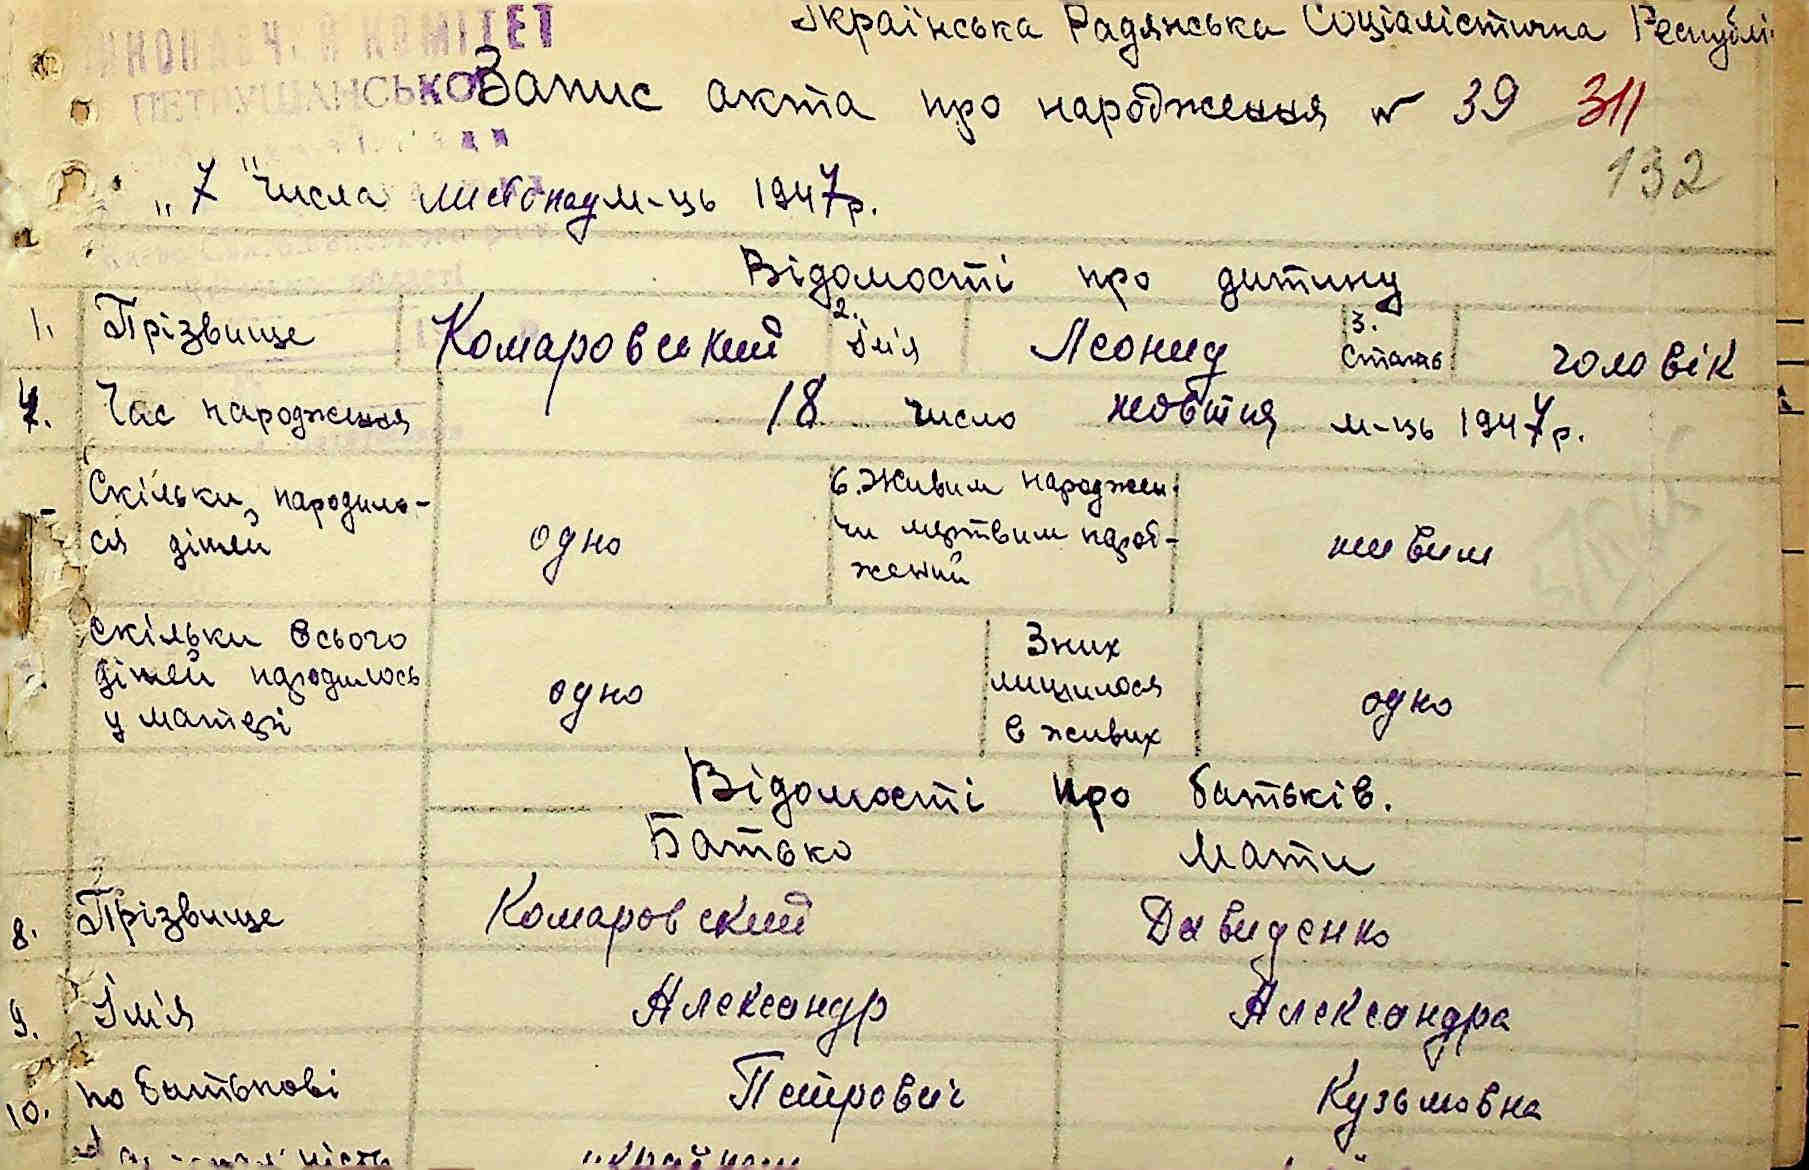 КОМІТЕТ
Українська Радянська Соціалістична Республі
Запис акта про народження № 39 311
132
„7" числа листопад м-ць 1947р.
Відомості про дитину
1. Прізвище Комаровский 2. Ім'я Леонид 3. Стать чоловік
4. Час народження 18 число жовтня м-ць 1947р.
Скільки народило- 6. Живим народжен.
ся дітей одно чи мертвим народ- живим
жений
Скільки всього З них
дітей народилось одно лишилося одно
у матері в живих
Відомості про батьків.
Батько Мати
8. Прізвище Комаровский Давиденко
9. Ім'я Александр Александра
10. по батькові Петрович Кузьмовна